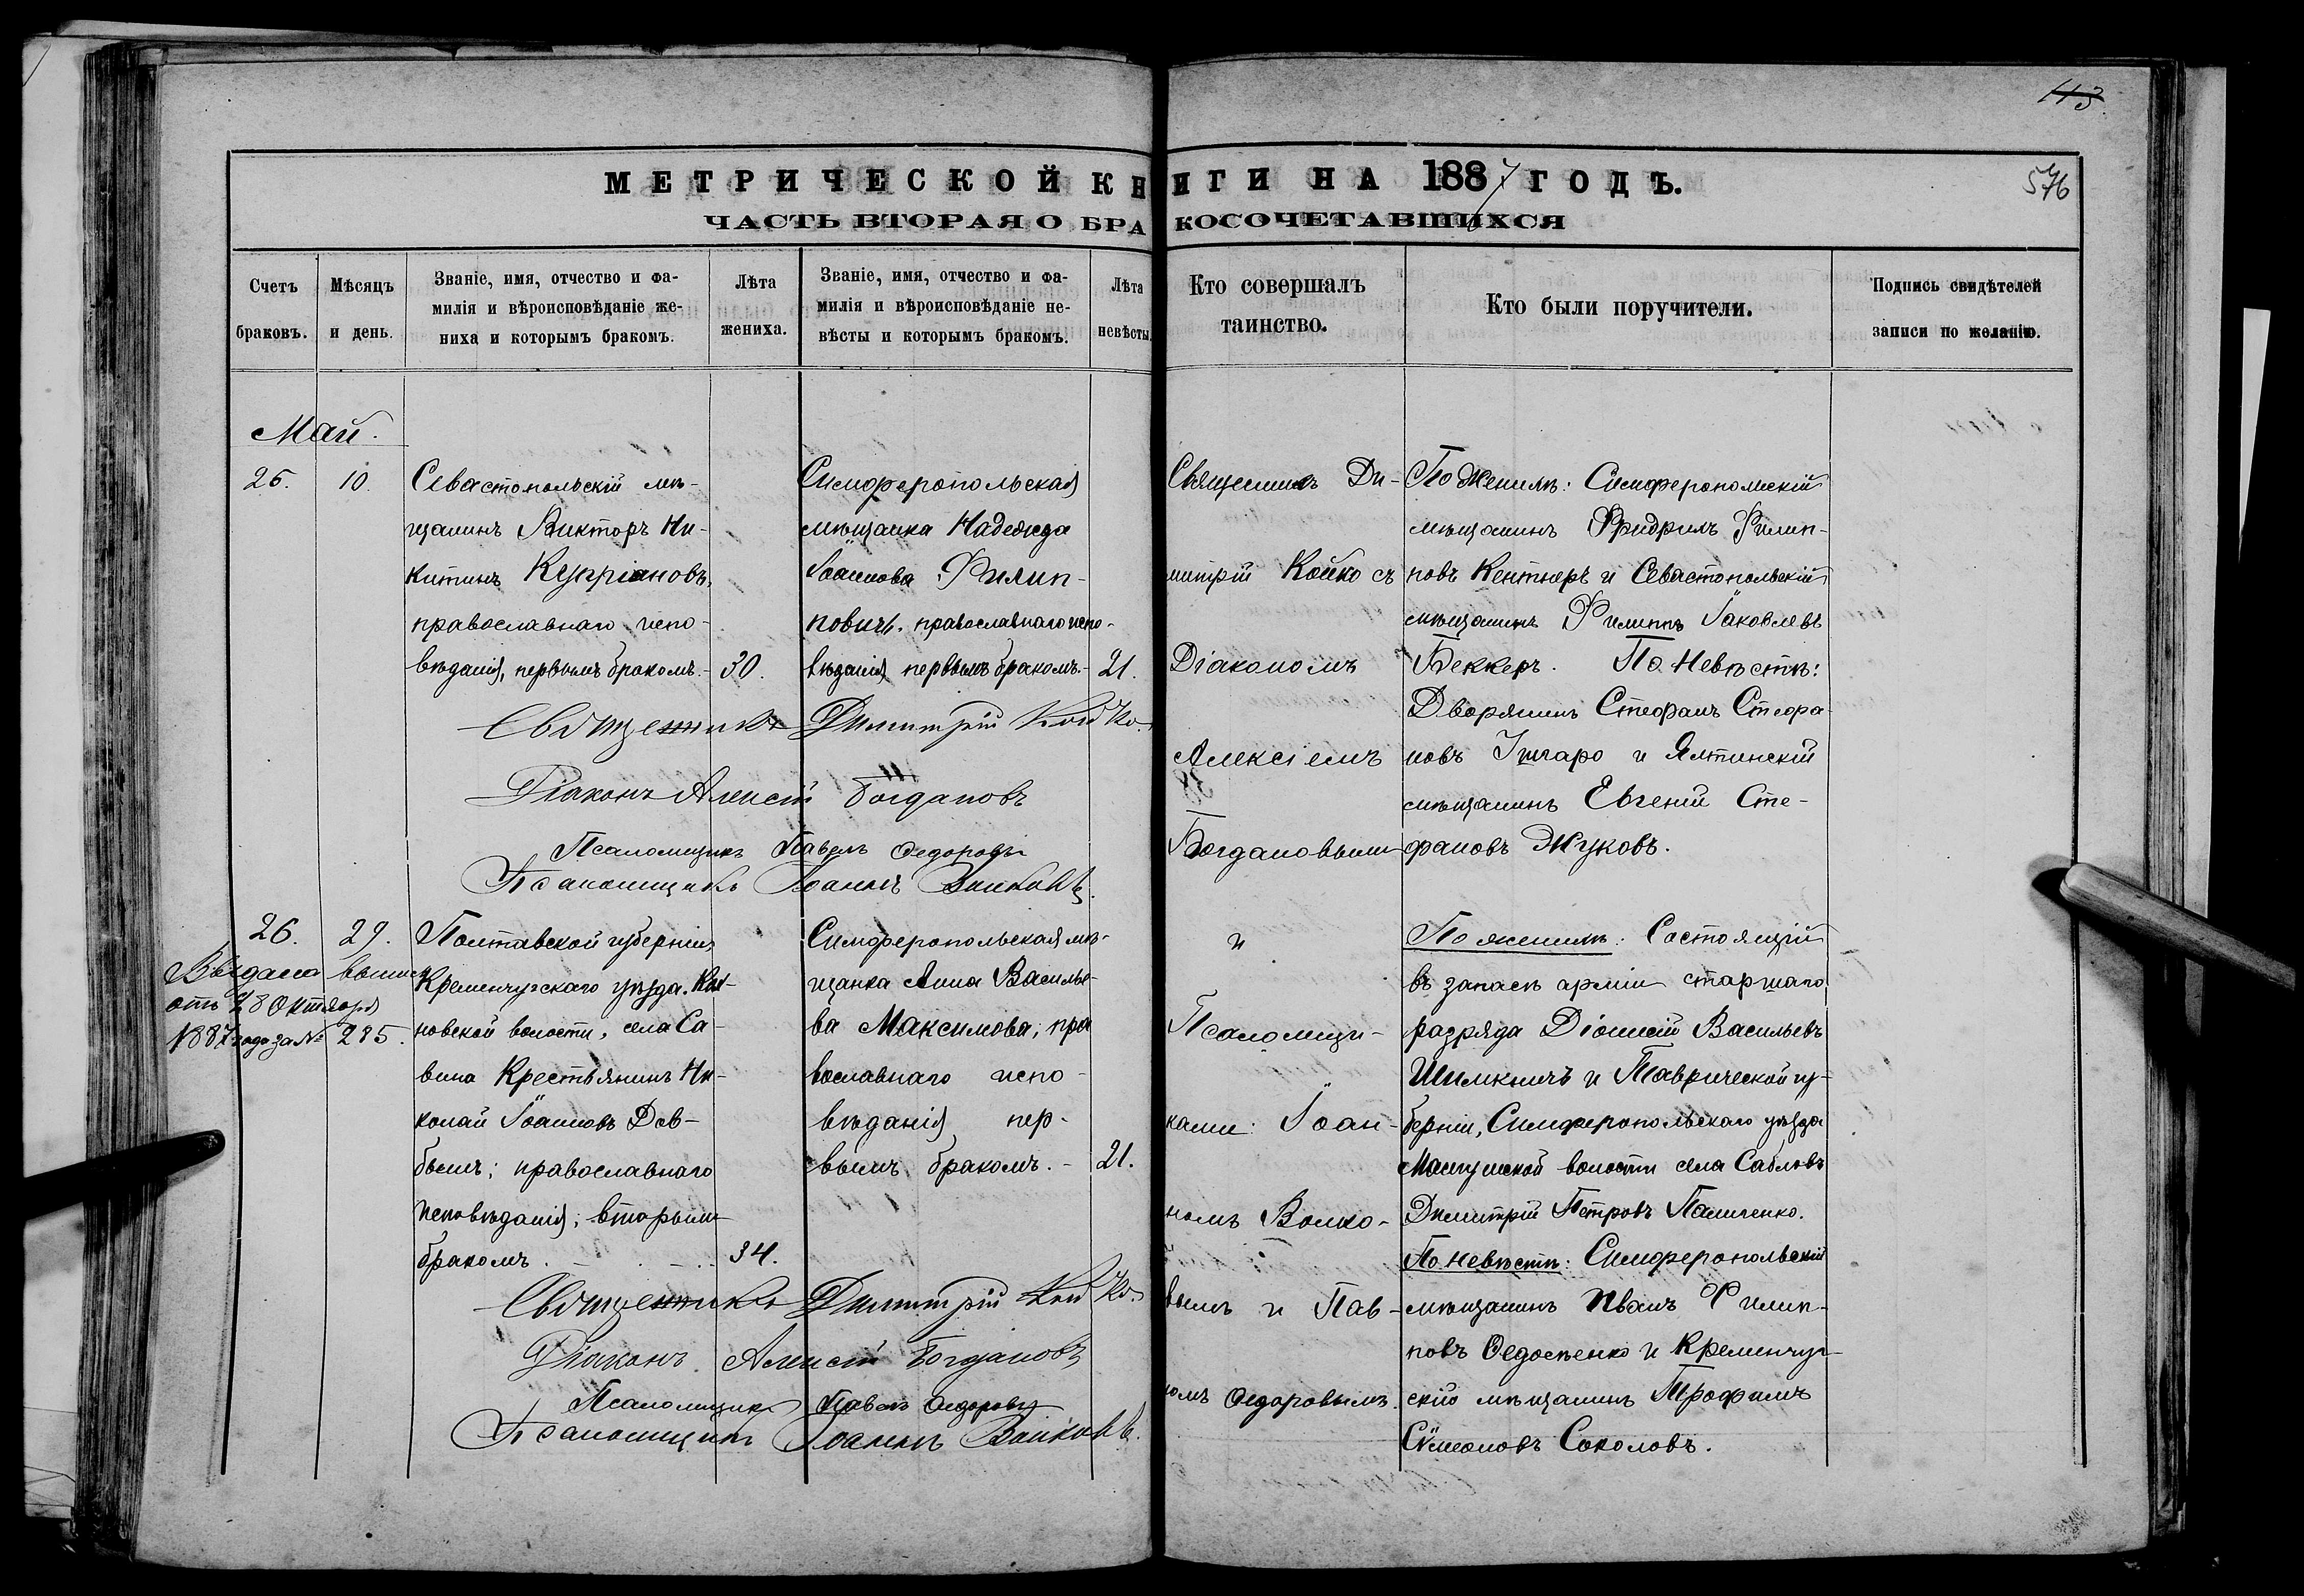 113
576
МЕТРИЧЕСКОЙ КНИГИ НА 1887 ГОДЪ.
ЧАСТЬ ВТОРАЯ О БРАКОСОЧЕТАВШИХСЯ
Счетъ
браковъ.
Мѣсяцъ
и день.
Званіе, имя, отчество и фа-
милія и вѣроисповѣданіе же-
ниха и которымъ бракомъ.
Лѣта
жениха.
Званіе, имя, отчество и фа-
милія и вѣроисповѣданіе не-
вѣсты и которымъ бракомъ.
Лѣта
невѣсты.
Кто совершалъ
таинство.
Кто были поручители.
Подпись свидѣтелей
записи по желанію.
Май.
25.
10.
Севастопольскій мѣ-
щанинъ Викторъ Ни-
китинъ Купріановъ,
православнаго испо-
вѣданія, первымъ бракомъ.
30.
Симферопольская
мѣщанка Надежда
Іоаннова Филип-
повичъ, православнаго испо-
вѣданія первымъ бракомъ.
21.
Священникъ Ди-
митрій Койко съ
Діакономъ
Алексіемъ
Богдановымъ
По Женихѣ: Симферопольскій
мѣщанинъ Фридрихъ Филип-
повъ Кентнеръ и Севастопольскій
мѣщанинъ Филиппъ Іаковлевъ
Беккеръ. По Невѣстѣ:
Дворянинъ Стефанъ Стефа-
новъ и Ялтинскій
мѣщанинъ Евгеній Сте-
фановъ Жуковъ.
Священникъ Димитрій Койко.
Діаконъ Алексій Богдановъ
Псаломщикъ Павелъ Ѳедоровъ
Псаломщикъ Іоаннъ Волковъ.
26.
29.
Выдана выпись
отъ 28 Октября
1887 года за № 285.
Полтавской губерніи
Кременчугскаго уѣзда.
новской волости, села Са-
вина Крестьянинъ Ни-
колай Іоанновъ Дов-
бышъ; православнаго
исповѣданія; вторымъ
бракомъ.
34.
Симферопольская мѣ-
щанка Анна Василье-
ва Максимова, пра
вославнаго испо-
вѣданія пер-
вымъ бракомъ.
21.
и
Псаломщи-
ками: Іоан-
номъ Волко-
вымъ и Пав-
ломъ Ѳедоровымъ.
По женихѣ: Состоящій
въ запасѣ арміи старшаго
разряда Діонисій Васильевъ
и Таврической гу-
берніи, Симферопольскаго уѣзда
волости села Сабловъ
Димитрій Петровъ Паниченко.
По невѣстѣ: Симферопольскій
мѣщанинъ Иванъ Филип-
повъ Ѳедосѣенко и Кременчуг-
скій мѣщанинъ Трофимъ
Сѵмеоновъ Соколовъ.
Священникъ Димитрій Койко.
Діаконъ Алексій Богдановъ
Псаломщикъ Павелъ Ѳедоровъ
Псаломщикъ Іоаннъ Волковъ.